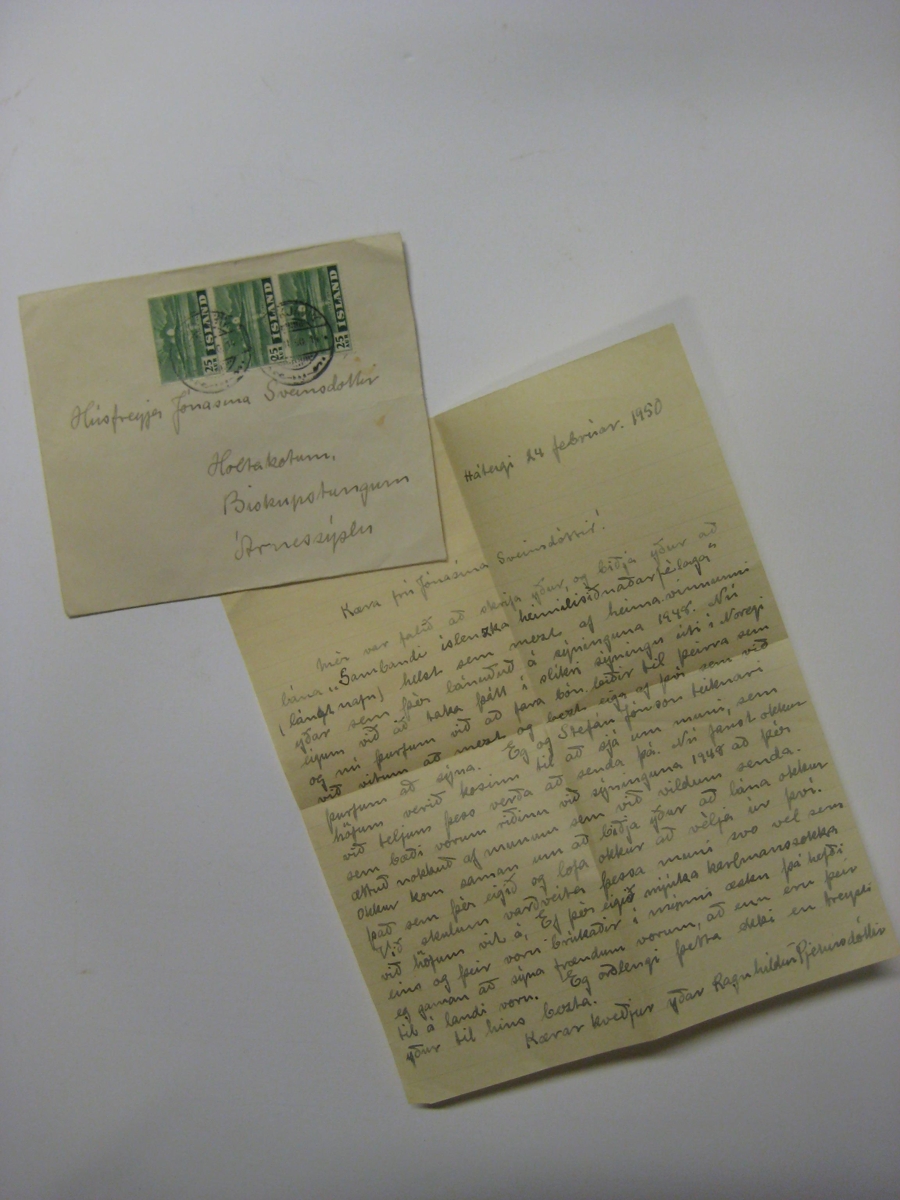 ÍSLAND
25
AUR
ÍSLAND
25
AUR
ÍSLAND
25
AUR
Húsfreyja Jónasína Sveinsdóttir
Holtakotum,
Biskupstungum
Árnessýslu
Háteigi 24 febrúar. 1950
Kæra frú Jónasína Sveinsdóttir!
Mér var falið að skrifa yður, og biðja yður að
lána „Sambandi íslenzka heimilisiðnaðarfélaga"
(langt nafn) helst sem mezt af heimavinnunni
yðar sem þér lánuðuð á sýninguna 1948. Nú
eigum við að taka þátt í slíkri sýningu úti í Noregi
og nú þurfum við að fara bón leiðir til þeirra sem
við vitum að mezt og bezt eiga og þess sem við
þurfum að sýna. Eg og Stefán Jónsson teiknari
höfum verið kosinn til að sjá um muni, sem
við teljum þess verða að senda þá. Nú fanst okkur
sem bæði vorum riðinn við sýninguna 1948 að þér
ættuð nokkuð af munum sem við vildum senda.
Okkur kom saman um að biðja yður að lána okkur
það sem þér eigið og lofa okkur að velja úr því.
Við skulum varðveita þessa muni svo vel sem
við höfum vit á. Ef þér eigið mjúka karlmannssokka
eins og þeir voru brúkaðir í minni æsku þá hefði
eg gaman að sýna frændum vorum, að enn eru þeir
til á landi voru. Eg orðlengi þetta ekki en treysti
yður til hins bezta.
Kærar kveðjur yðar Ragnhildur Pjetursdóttir